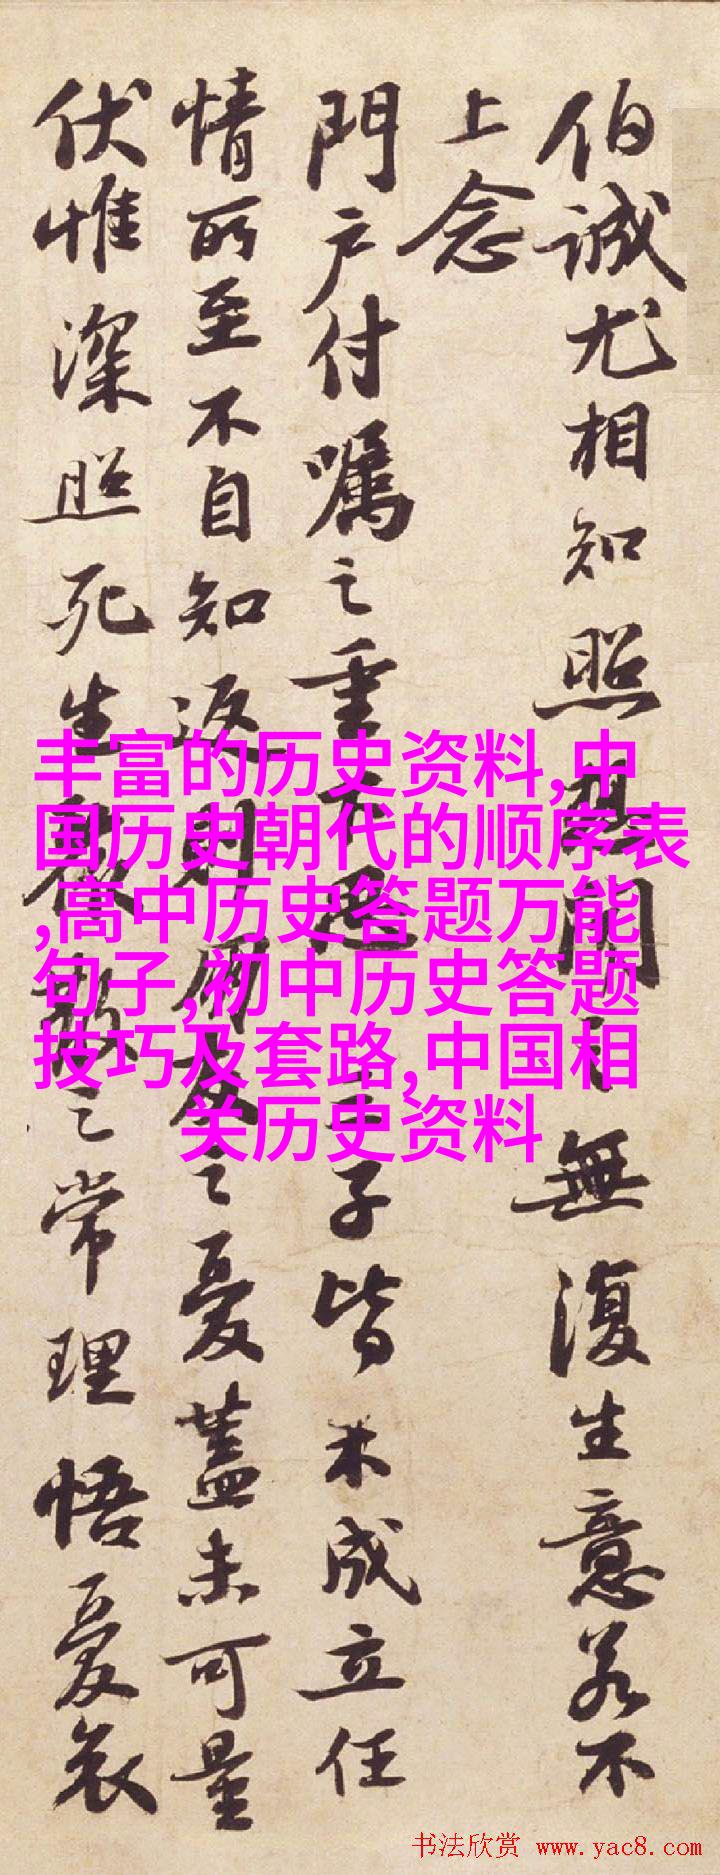 伯誠尤相知照想聞之無復生意若不
上念
門户付囑之重下思三子皆未成立任
情所至不自知返則朋友之憂蓋未可量
伏惟深照死生聚散之常理悟憂哀
丰富的历史资料,中
国历史朝代的顺序表
,高中历史答题万能
句子,初中历史答题
技巧及套路,中国相
关历史资料
书法欣赏 www.yac8.com